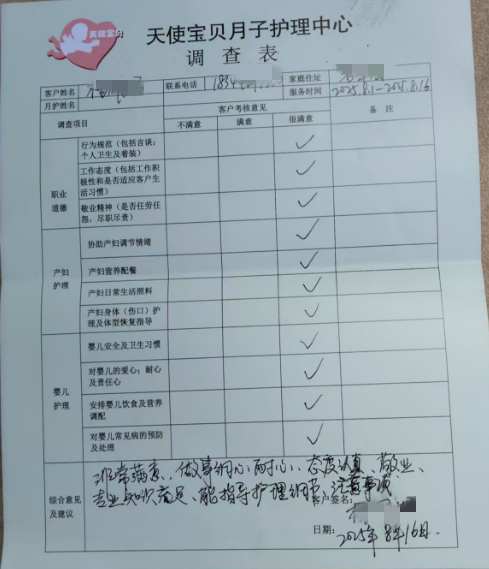 天使宝贝
天使宝贝月子护理中心
调查表
客户姓名 联系电话 家庭住址
月护姓名 服务时间 2025.8.1-2025.8.16
调查项目 客户考核意见 备注
不满意 满意 很满意
职业道德
行为规范（包括言谈；个人卫生及着装） ✓
工作态度（包括工作积极性和是否适应客户生活习惯） ✓
敬业精神（是否任劳任怨，尽职尽责） ✓
产妇护理
协助产妇调节情绪 ✓
产妇营养配餐 ✓
产妇日常生活照料 ✓
产妇身体（伤口）护理及体型恢复指导 ✓
婴儿护理
婴儿安全及卫生习惯 ✓
对婴儿的爱心；耐心及责任心 ✓
安排婴儿饮食及营养调配 ✓
对婴儿常见病的预防及处理 ✓
综合意见及建议
非常满意、做事细心耐心、态度认真、敬业、
专业知识充足、能指导护理细节、注意事项
客户签名：
日期： 2025年8月16日.